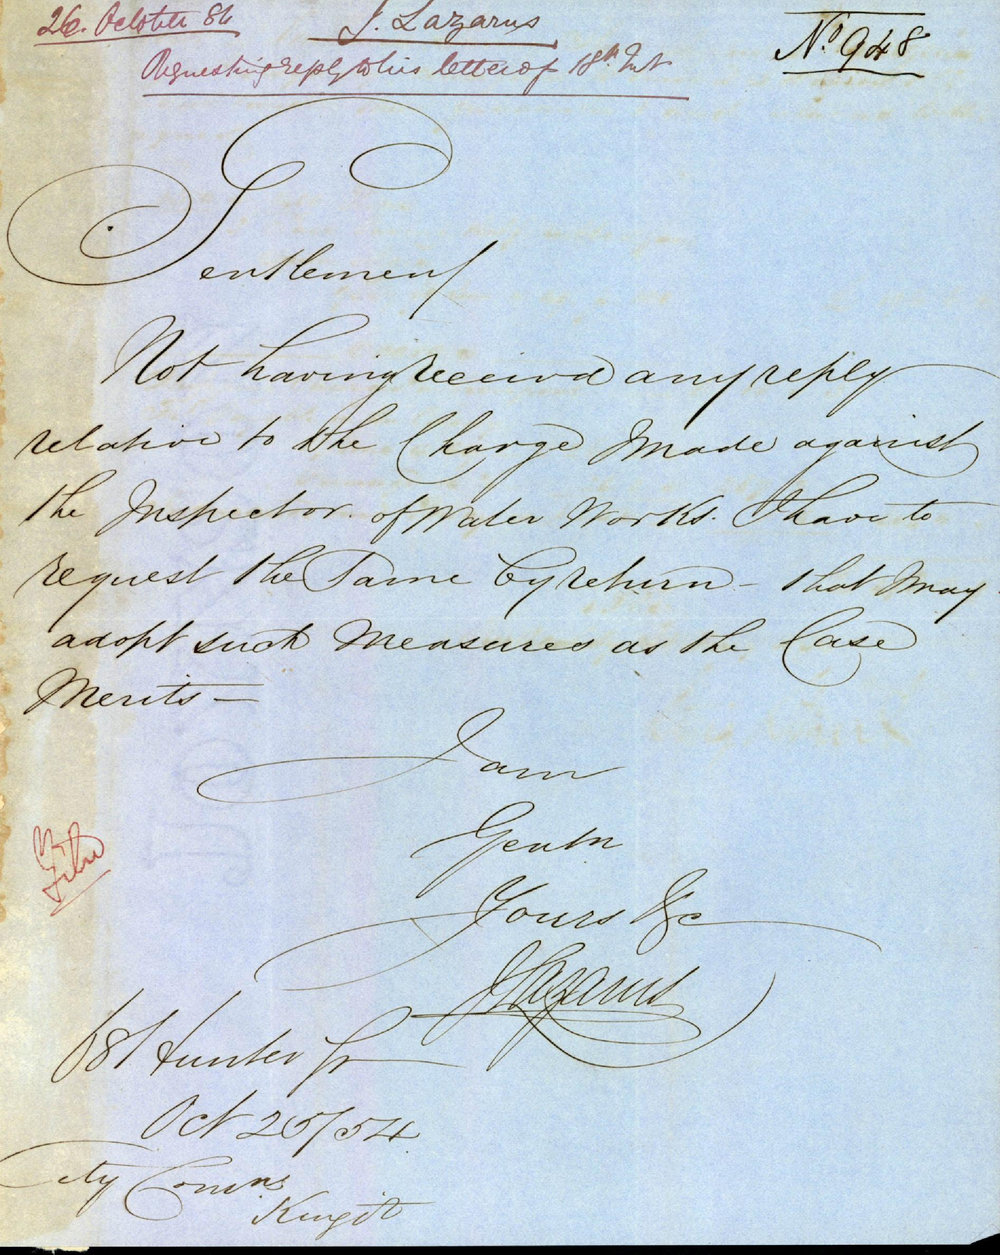 26. October 54 J. Lazarus No. 948
Requesting reply to his letter of 18th Inst
Gentlemen
Not having received any reply
relative to the Charge Made against
the Inspector of Water Works. I have to
request the Same by return - that I may
adopt such Measures as the Case
Merits =
I am
Gentn
Yours &c
J Lazarus
681 Hunter St
Oct 25/54
City Comrs
King St